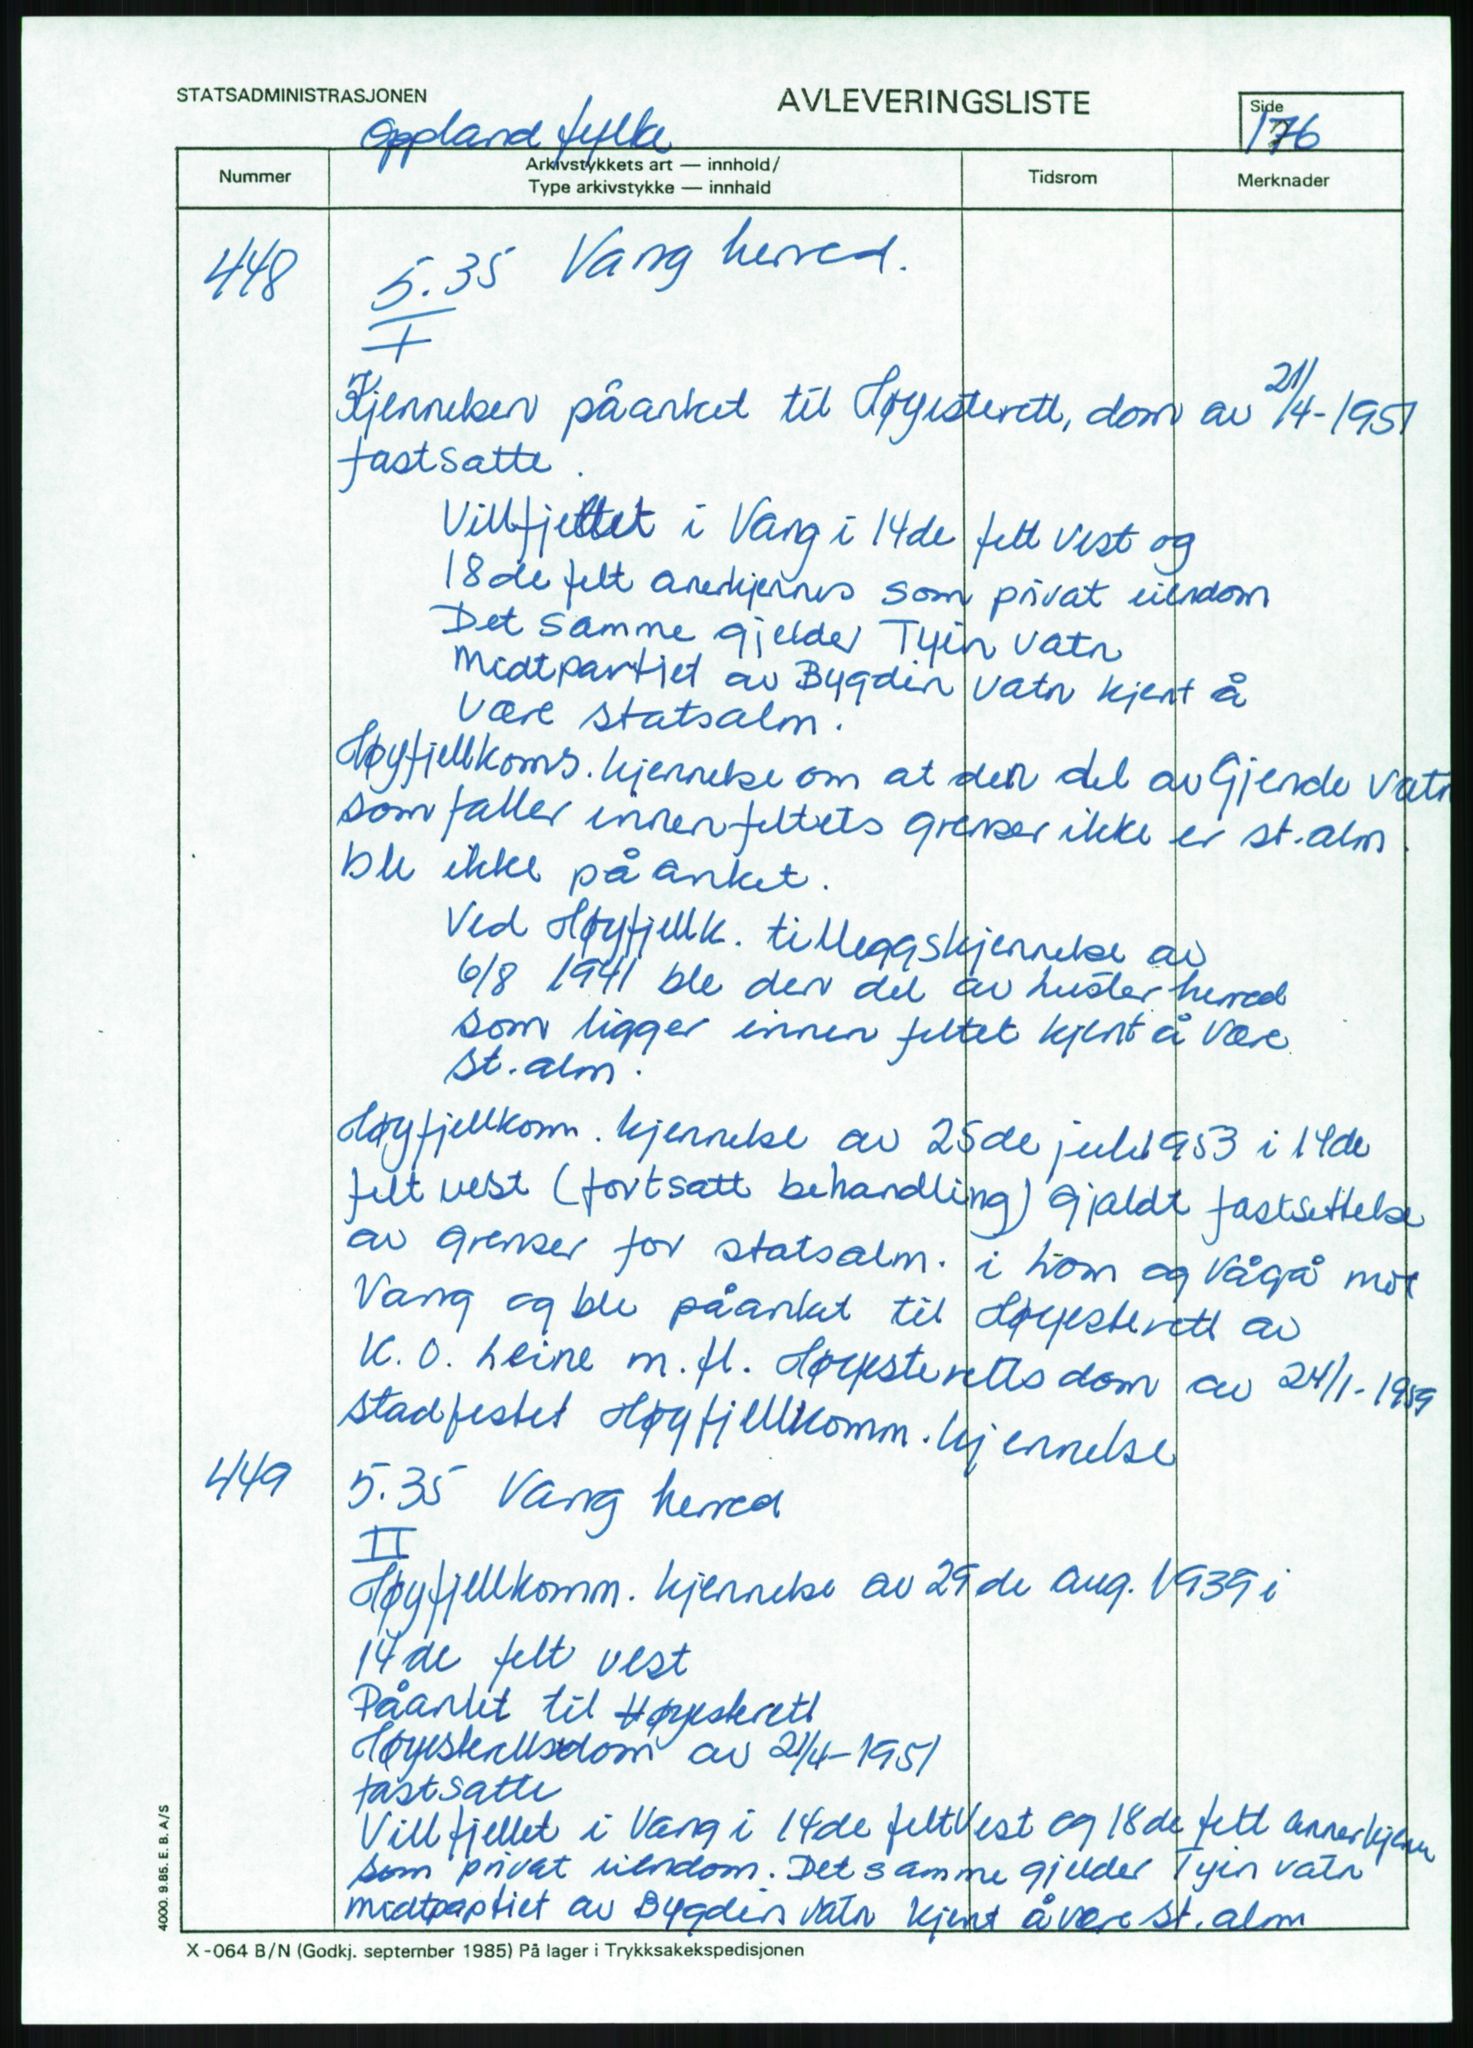 STATSADMINISTRASJONEN
AVLEVERINGSLISTE
Side
176
Oppland fylke
Nummer
Arkivstykkets art — innhold/
Type arkivstykke — innhald
Tidsrom
Merknader
448
5.35 Vang herred.
I
Kjennelsen påanket til Høyesterett, dom av 21/4-1951
fastsatte.
Villfjellet i Vang i 14de felt vest og
18de felt anerkjennes som privat eiendom
Det samme gjelder Tyin vatn
midtpartiet av Bygdin vatn kjent å
være statsalm.
Høyfjellkoms. kjennelse om at den del av Gjende vatn
som faller innen feltets grenser ikke er st.alm.
ble ikke påanket.
Ved Høyfjellk. tilleggskjennelse av
6/8 1941 ble den del av Luster herred
som ligger innen feltet kjent å være
st.alm.
Høyfjellkomm. kjennelse av 25de juli 1953 i 14de
felt vest (fortsatt behandling) gjaldt fastsettelse
av grenser for statsalm. i Lom og Vågå mot
Vang og ble påanket til Høyesterett av
K.O. Leine m.fl. Høyesterettsdom av 24/1-1959
stadfestet Høyfjellkomm. kjennelse
449
5.35 Vang herred
II
Høyfjellkomm. kjennelse av 29de aug. 1939 i
14de felt vest
Påanket til Høyesterett
Høyesterettsdom av 21/4-1951
fastsatte
Villfjellet i Vang i 14de felt Vest og 18de felt annerkjennes
som privat eiendom. Det samme gjelder Tyin vatn
midtpartiet av Bygdin vatn kjent å være st.alm
4000. 9.85. E. B. A/S
X-064 B/N (Godkj. september 1985) På lager i Trykksakekspedisjonen